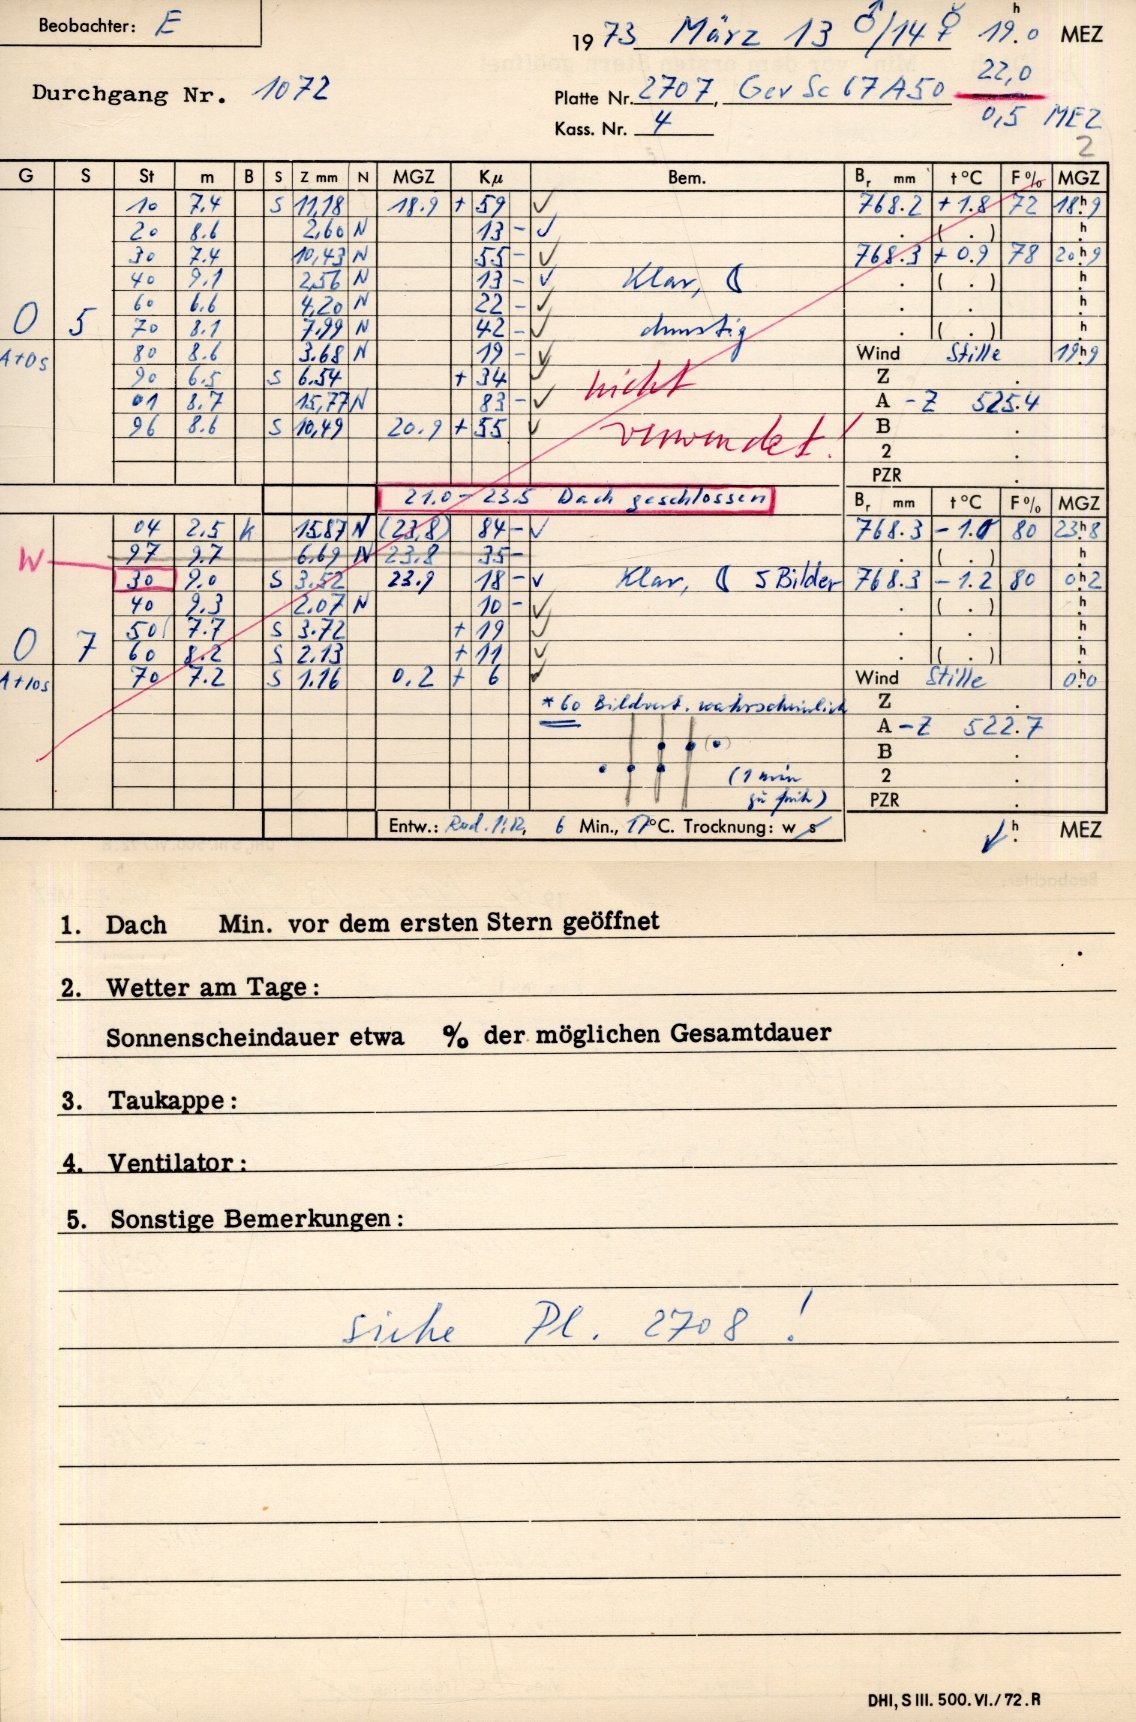 Beobachter: E
1973 März 13 ♂/14 ☿ 19.h0 MEZ
22,0
Durchgang Nr. 1072
Platte Nr. 2707, Gev Sc 67A50
0,5 MEZ
Kass. Nr. 4
2
G S St m B S Z mm N MGZ Kµ Bem. Br mm t °C F % MGZ
10 7.4 S 11,18 18.9 + 59 ✓ 768.2 + 1.8 72 18h9
20 8.6 2,60 N 13 - ✓ . ( . ) h
30 7.4 10,43 N 55 - ✓ 768.3 + 0.9 78 20h9
40 9.1 2,56 N 13 - ✓ Klar, ☾ . ( . ) h
60 6.6 4,20 N 22 - ✓ . . h
0 5 70 8.1 7,99 N 42 - ✓ dunstig . ( . ) h
A+0s 80 8.6 3.68 N 19 - ✓ Wind Stille 19h9
90 6.5 S 6.54 + 34 ✓ nicht Z .
01 8.7 15,77 N 83 - ✓ A - Z 525.4
96 8.6 S 10,49 20.9 + 55 ✓ verwendet! B .
2 .
PZR
21.0 - 23.5 Dach geschlossen Br mm t °C F % MGZ
04 2.5 K 15.87 N (23,8) 84 - ✓ 768.3 - 1.0 80 23h8
97 9.7 6.69 N 23.8 35 - . ( . ) h
W 30 9.0 S 3.52 23.9 18 - ✓ Klar, ☾ 5 Bilder 768.3 - 1.2 80 0h2
40 9.3 2.07 N 10 - ✓ . ( . ) h
50 7.7 S 3.72 + 19 ✓ . . h
0 7 60 8.2 S 2.13 + 11 ✓ . ( . ) h
A+10s 70 7.2 S 1.16 0.2 + 6 ✓ Wind Stille 0h0
* 60 Bildvert. wahrscheinlich Z .
A - Z 522.7
(•) B .
(1 min 2 .
zu früh) PZR .
Entw.: Rod. 1:12, 6 Min., 17°C. Trocknung: w s ✓ h. MEZ
1. Dach Min. vor dem ersten Stern geöffnet
2. Wetter am Tage:
Sonnenscheindauer etwa % der möglichen Gesamtdauer
3. Taukappe:
4. Ventilator:
5. Sonstige Bemerkungen:
siehe Pl. 2708 !
DHI, S III. 500. VI./72. R